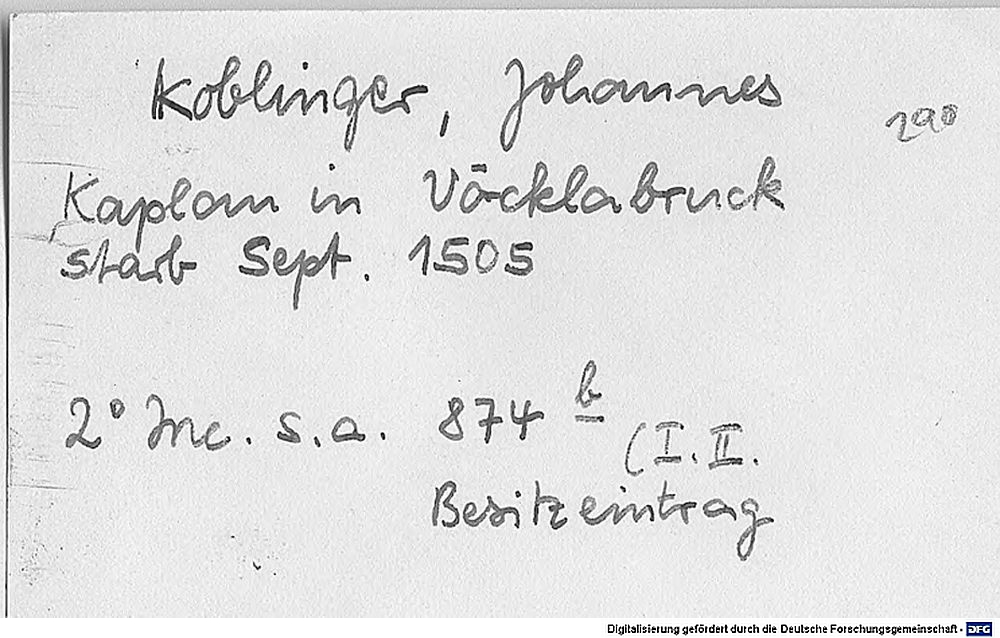 Koblinger, Johannes
290
Kaplan in Vöcklabruck
starb Sept. 1505
2° Inc. s.a. 874 b
(I. II.
Besitzeintrag
Digitalisierung gefördert durch die Deutsche Forschungsgemeinschaft - DFG